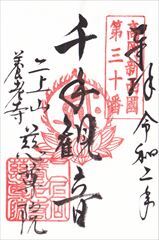 奉拝 令和二年
高岡新西国
第三十番
千手観音
二上山
養老寺 慈尊院